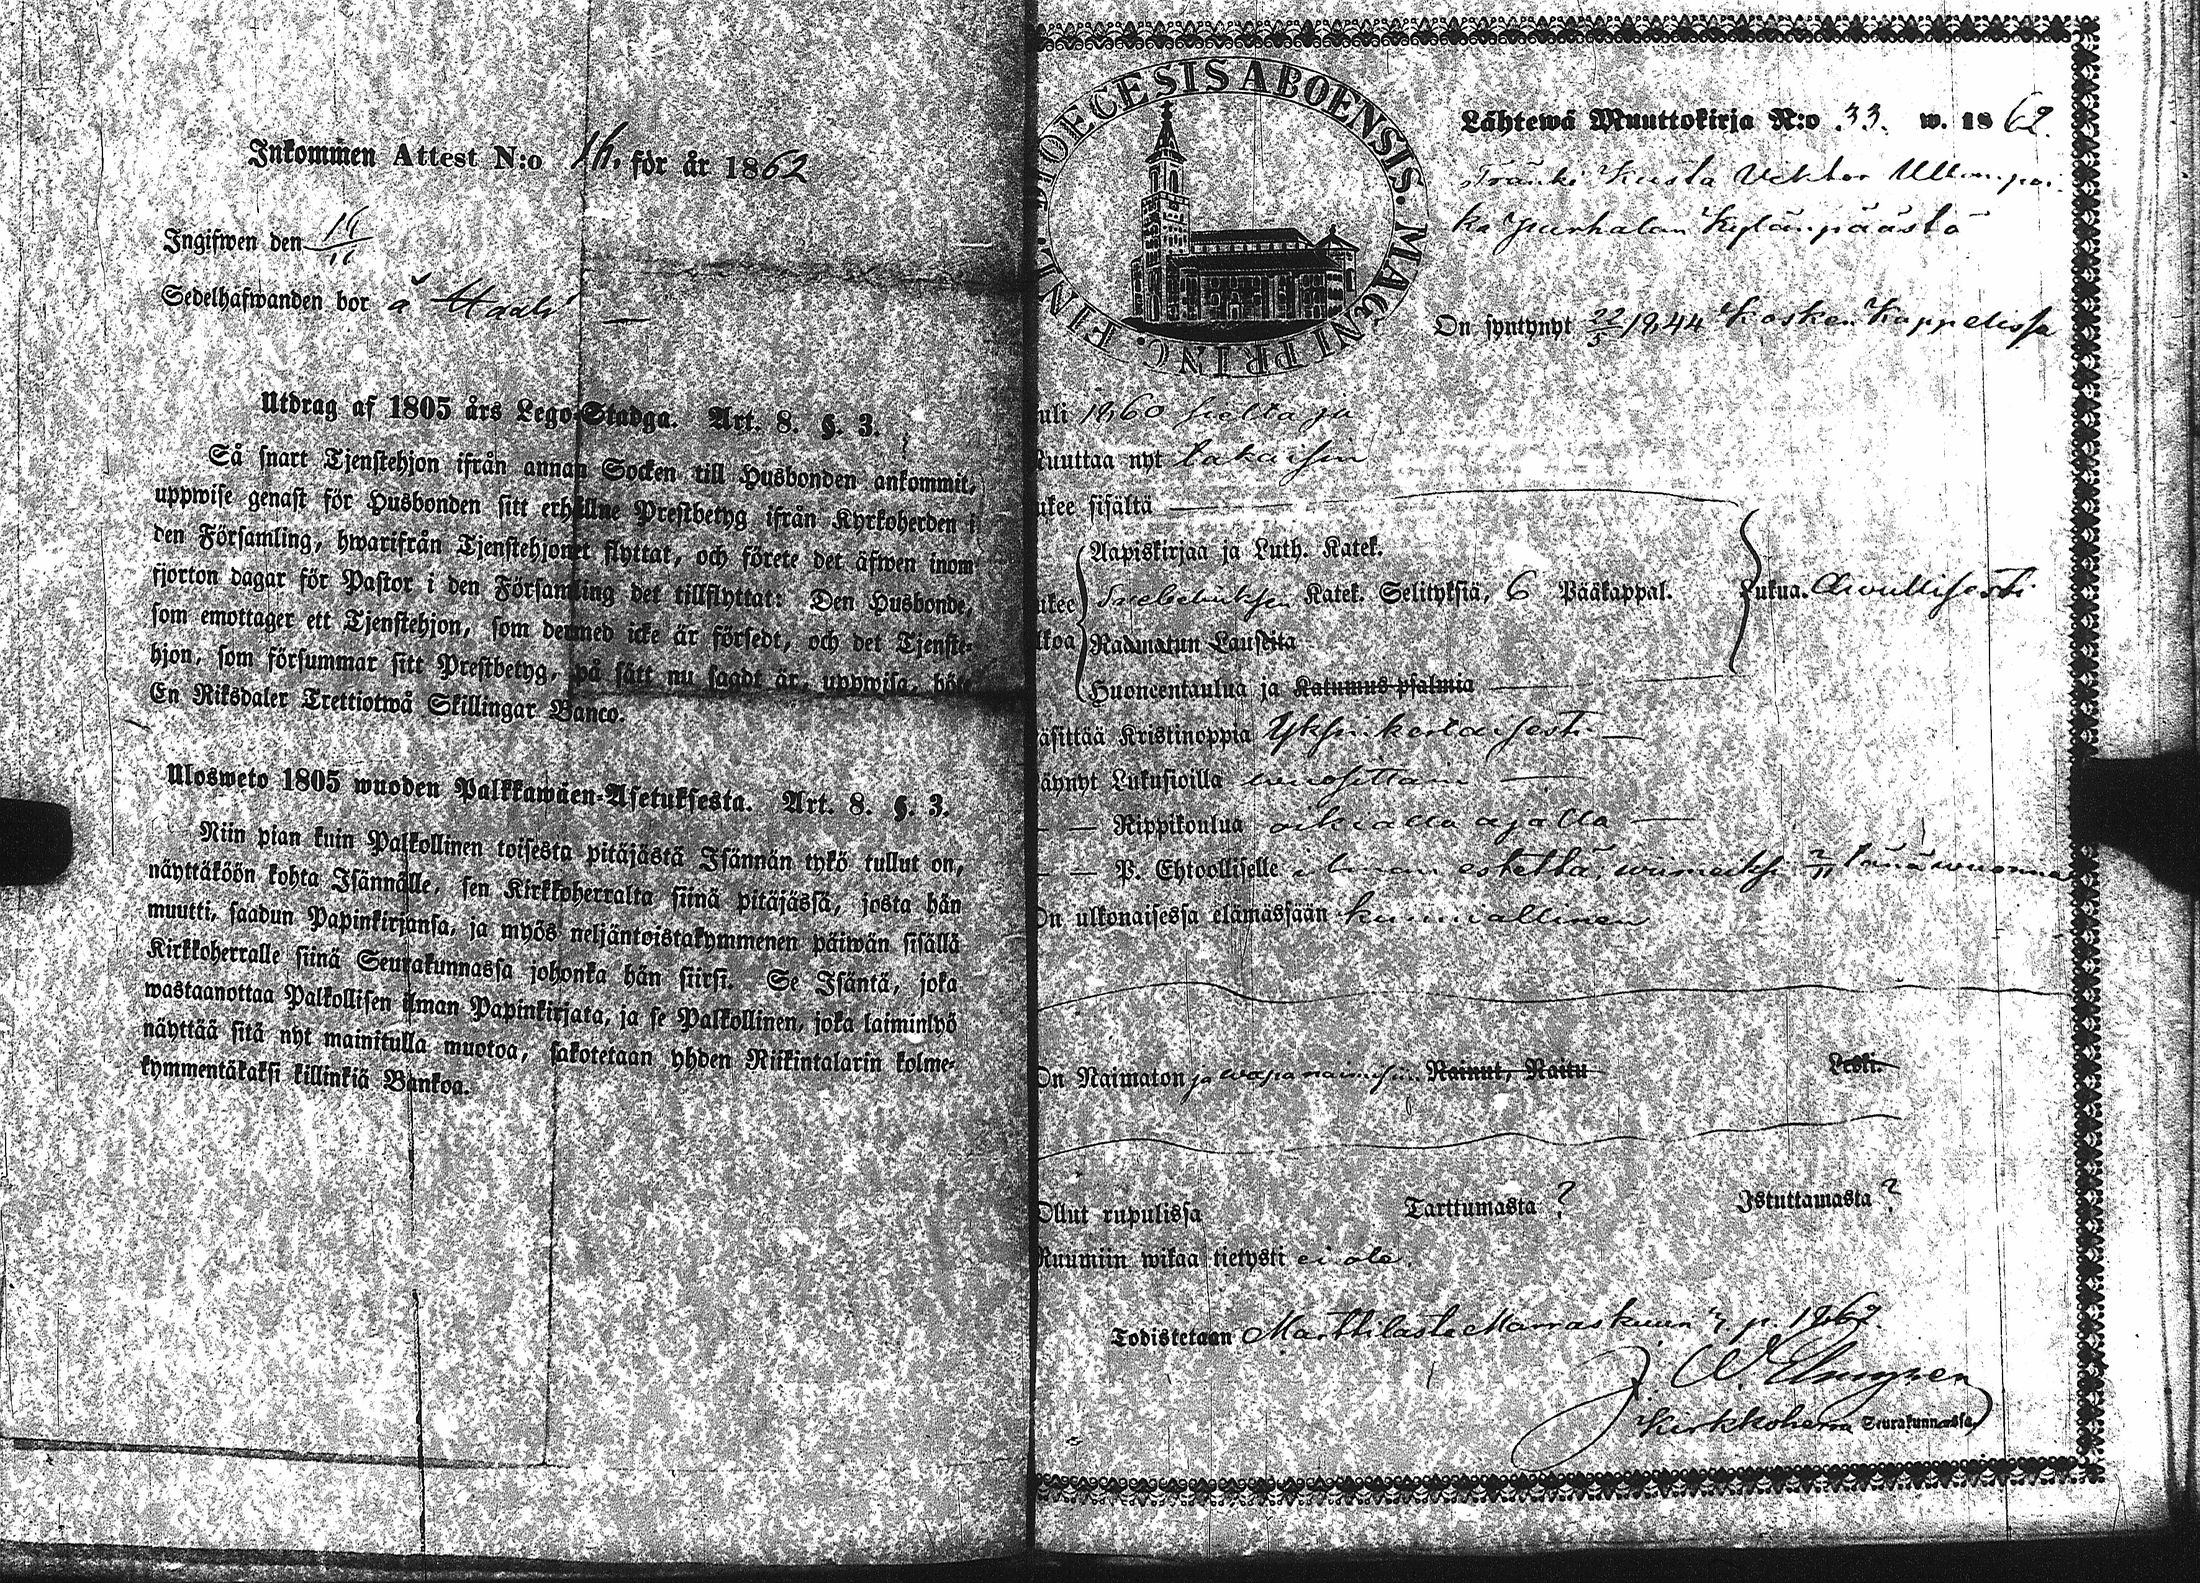 Inkommen Attest N:o 16. för år 1862
Ingifwen den 16/11
Sedelhafwanden bor å
Utdrag af 1805 års Lego-Stadga. Art. 8. §. 3.
Så snart Tjenstehjon ifrån annan Socken till Husbonden ankommit,
uppwise genast för Husbonden sitt erhållne Prestbetyg ifrån Kyrkoherden i
den Församling, hwarifrån Tjenstehjonet flyttat, och förete det äfwen inom
fjorton dagar för Pastor i den Församling det tillflyttat: Den Husbonde,
som emottager ett Tjenstehjon, som dermed icke är försedt, och det Tjenste-
hjon, som försummar sitt Prestbetyg, på sätt nu sagdt är, uppwisa, böte
En Riksdaler Trettiotwå Skillingar Banco.
Ulosweto 1805 wuoden Palkkawäen-Asetuksesta. Art. 8. §. 3.
Niin pian kuin Palkollinen toisesta pitäjästä Isännän tykö tullut on,
näyttäköön kohta Isännälle, sen Kirkkoherralta siinä pitäjässä, josta hän
muutti, saadun Papinkirjansa, ja myös neljäntoistakymmenen päiwän sisällä
Kirkkoherralle siinä Seurakunnassa johonka hän siirsi. Se Isäntä, joka
wastaanottaa Palkollisen ilman Papinkirjata, ja se Palkollinen, joka laiminlyö
näyttää sitä nyt mainitulla muotoa, sakotetaan yhden Riikintalarin kolme-
kymmentäkaksi killinkiä Bankoa.
DIOECESIS ABOENSIS. MAGNI PRINC. FINL.
Lähtewä Muuttokirja N:o 33. w. 1862.
Tränki Kusta Viktor
ka Kylänpäästä
On syntynyt 22/5 1844 Kosken Kappelissa
uli 1860 sieltä ja
uuttaa nyt takaisin
ukee sisältä
Aapiskirjaa ja Luth. Katek.
ukee Svebeliuksen Katek. Selityksiä, 6 Pääkappal. Lukua. Awullisesti
lkoa Raamatun Lauseita
Huoneentaulua ja Katumus-psalmia
äsittää Kristinoppia Yksinkertaisesti
äynyt Lukusioilla wuosittain
— — Rippikoulua oikialla ajalla
— — P. Ehtoolliselle ilman estettä, wiimeksi 2/11 tänäwuonna
On ulkonaisessa elämässään kunniallinen
On Naimaton ja wapa naimisiin Nainut, Naitu Leski.
Ollut rupulissa Tarttumasta ? Istuttamasta ?
Ruumiin wikaa tietysti ei ole.
Todistetaan Marttilasta Marraskuun p. 1862.
Kirkkoherra Seurakunnassa,